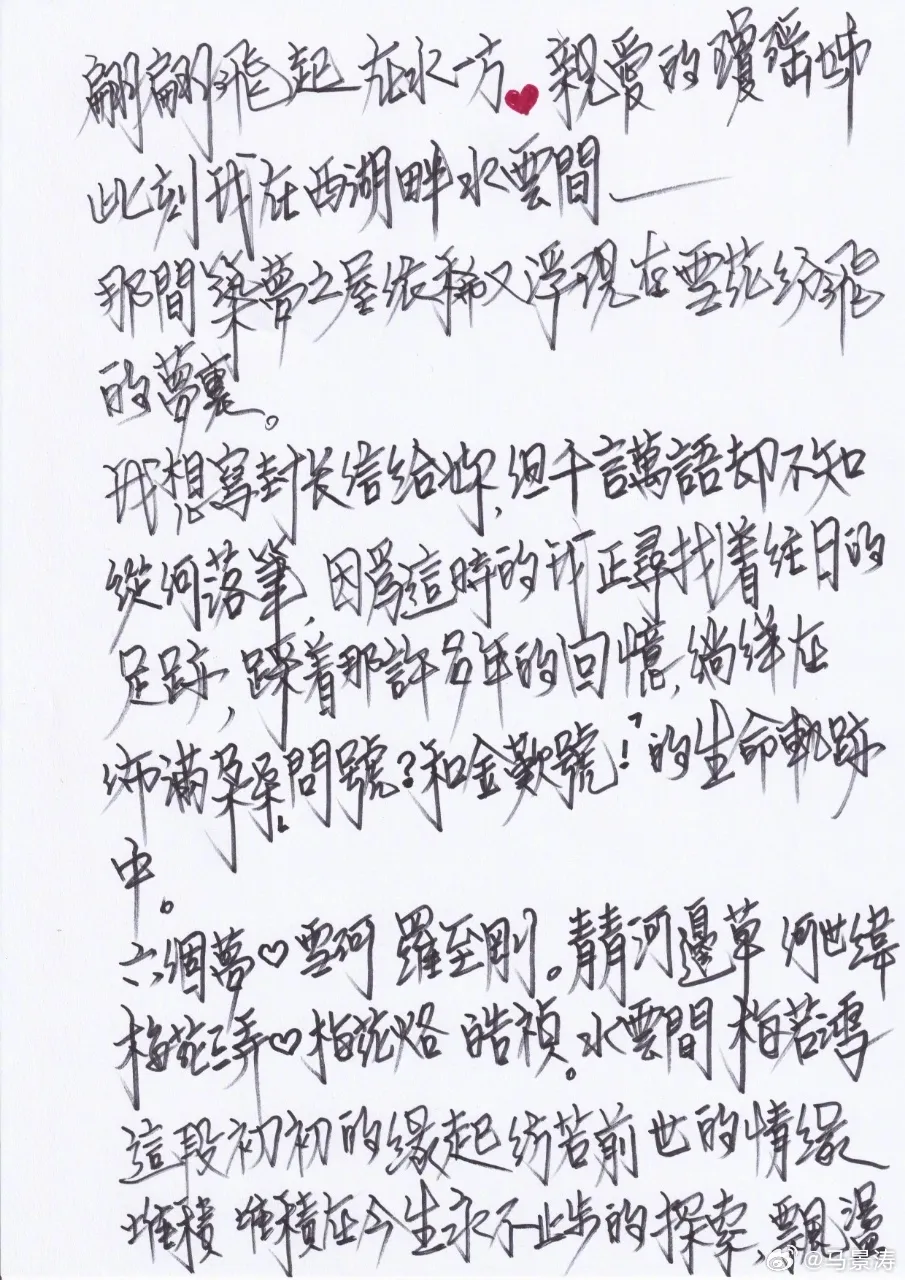 翩翩飛起 在水一方♥親愛的瓊瑤姊
此刻我在西湖畔水雲間——
那間築夢之屋依稀又浮現在雪花紛飛
的夢裏。
我想寫封长信給妳,但千言萬語却不知
從何落筆,因爲這時的我正尋找着往日的
足跡,踩着那許多年的回憶,徜徉在
佈滿朵朵問號?和金歎號!的生命軌跡
中。
六個夢♡雪珂 羅至剛。青青河邊草 何世緯
梅花三弄♡梅花烙 皓禎。水雲間 梅若鴻
這段初初的缘起彷若前世的情缘
堆積 堆積在今生永不止步的探索,飄漫
@马景涛